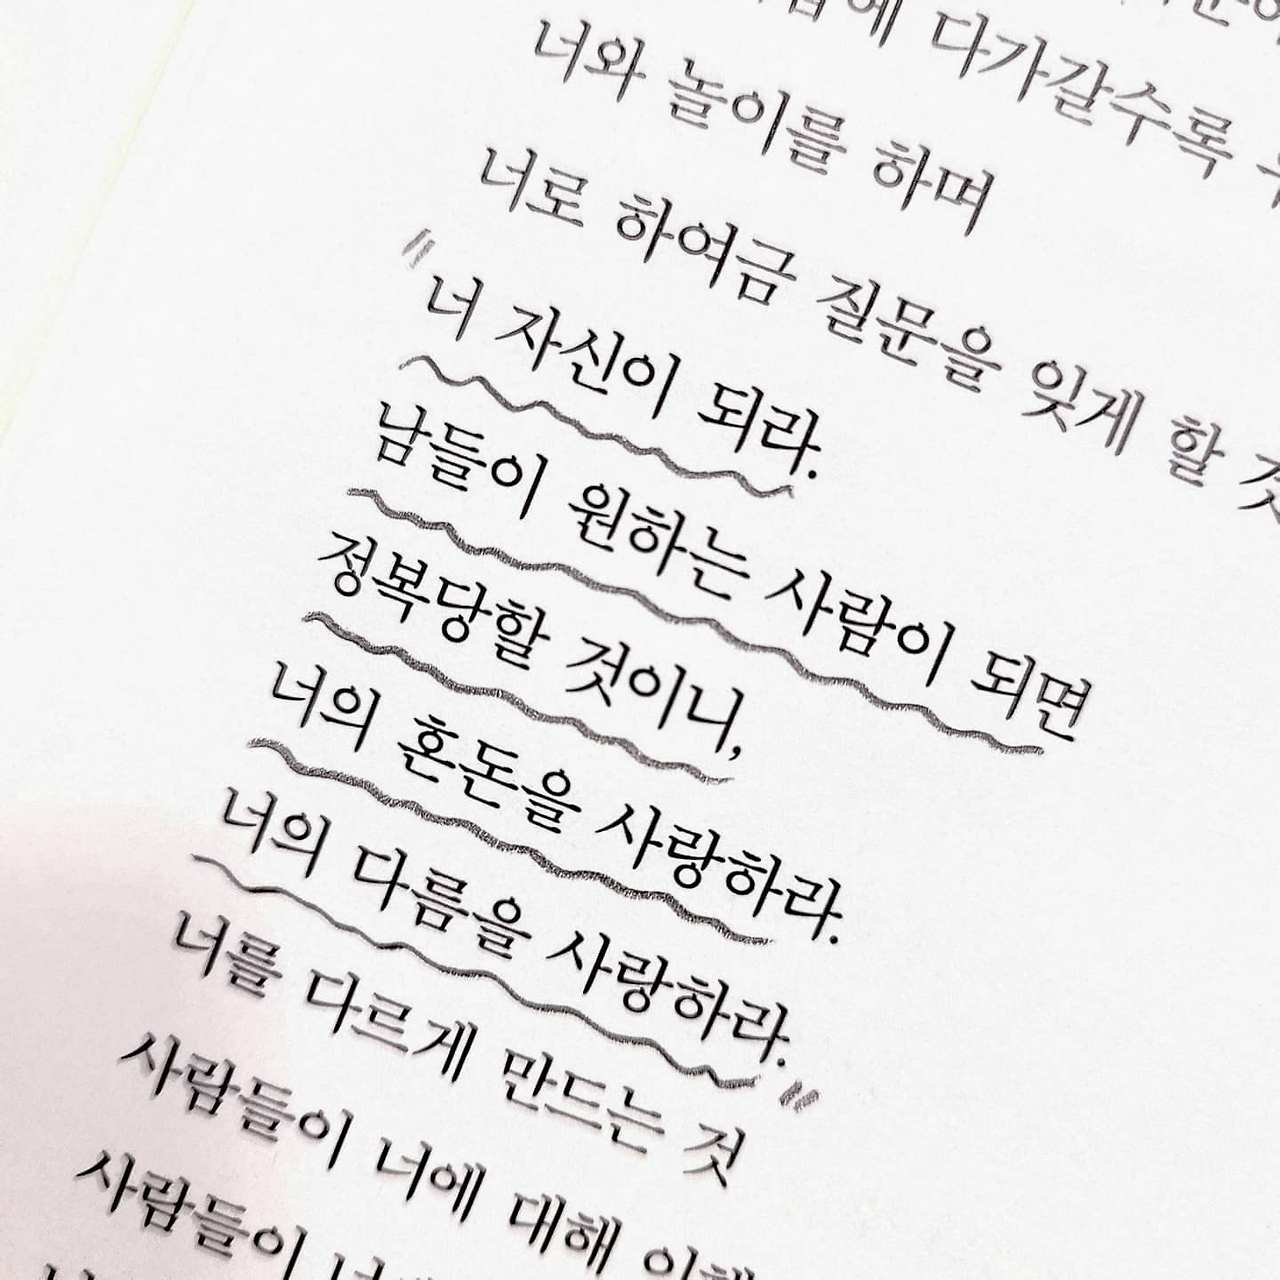 다가갈수록
너와 놀이를 하며
너로 하여금 질문을 잊게 할 것
" 너 자신이 되라.
남들이 원하는 사람이 되면
정복당할 것이니,
너의 혼돈을 사랑하라.
너의 다름을 사랑하라. "
너를 다르게 만드는 것
사람들이 너에 대해
사람들이